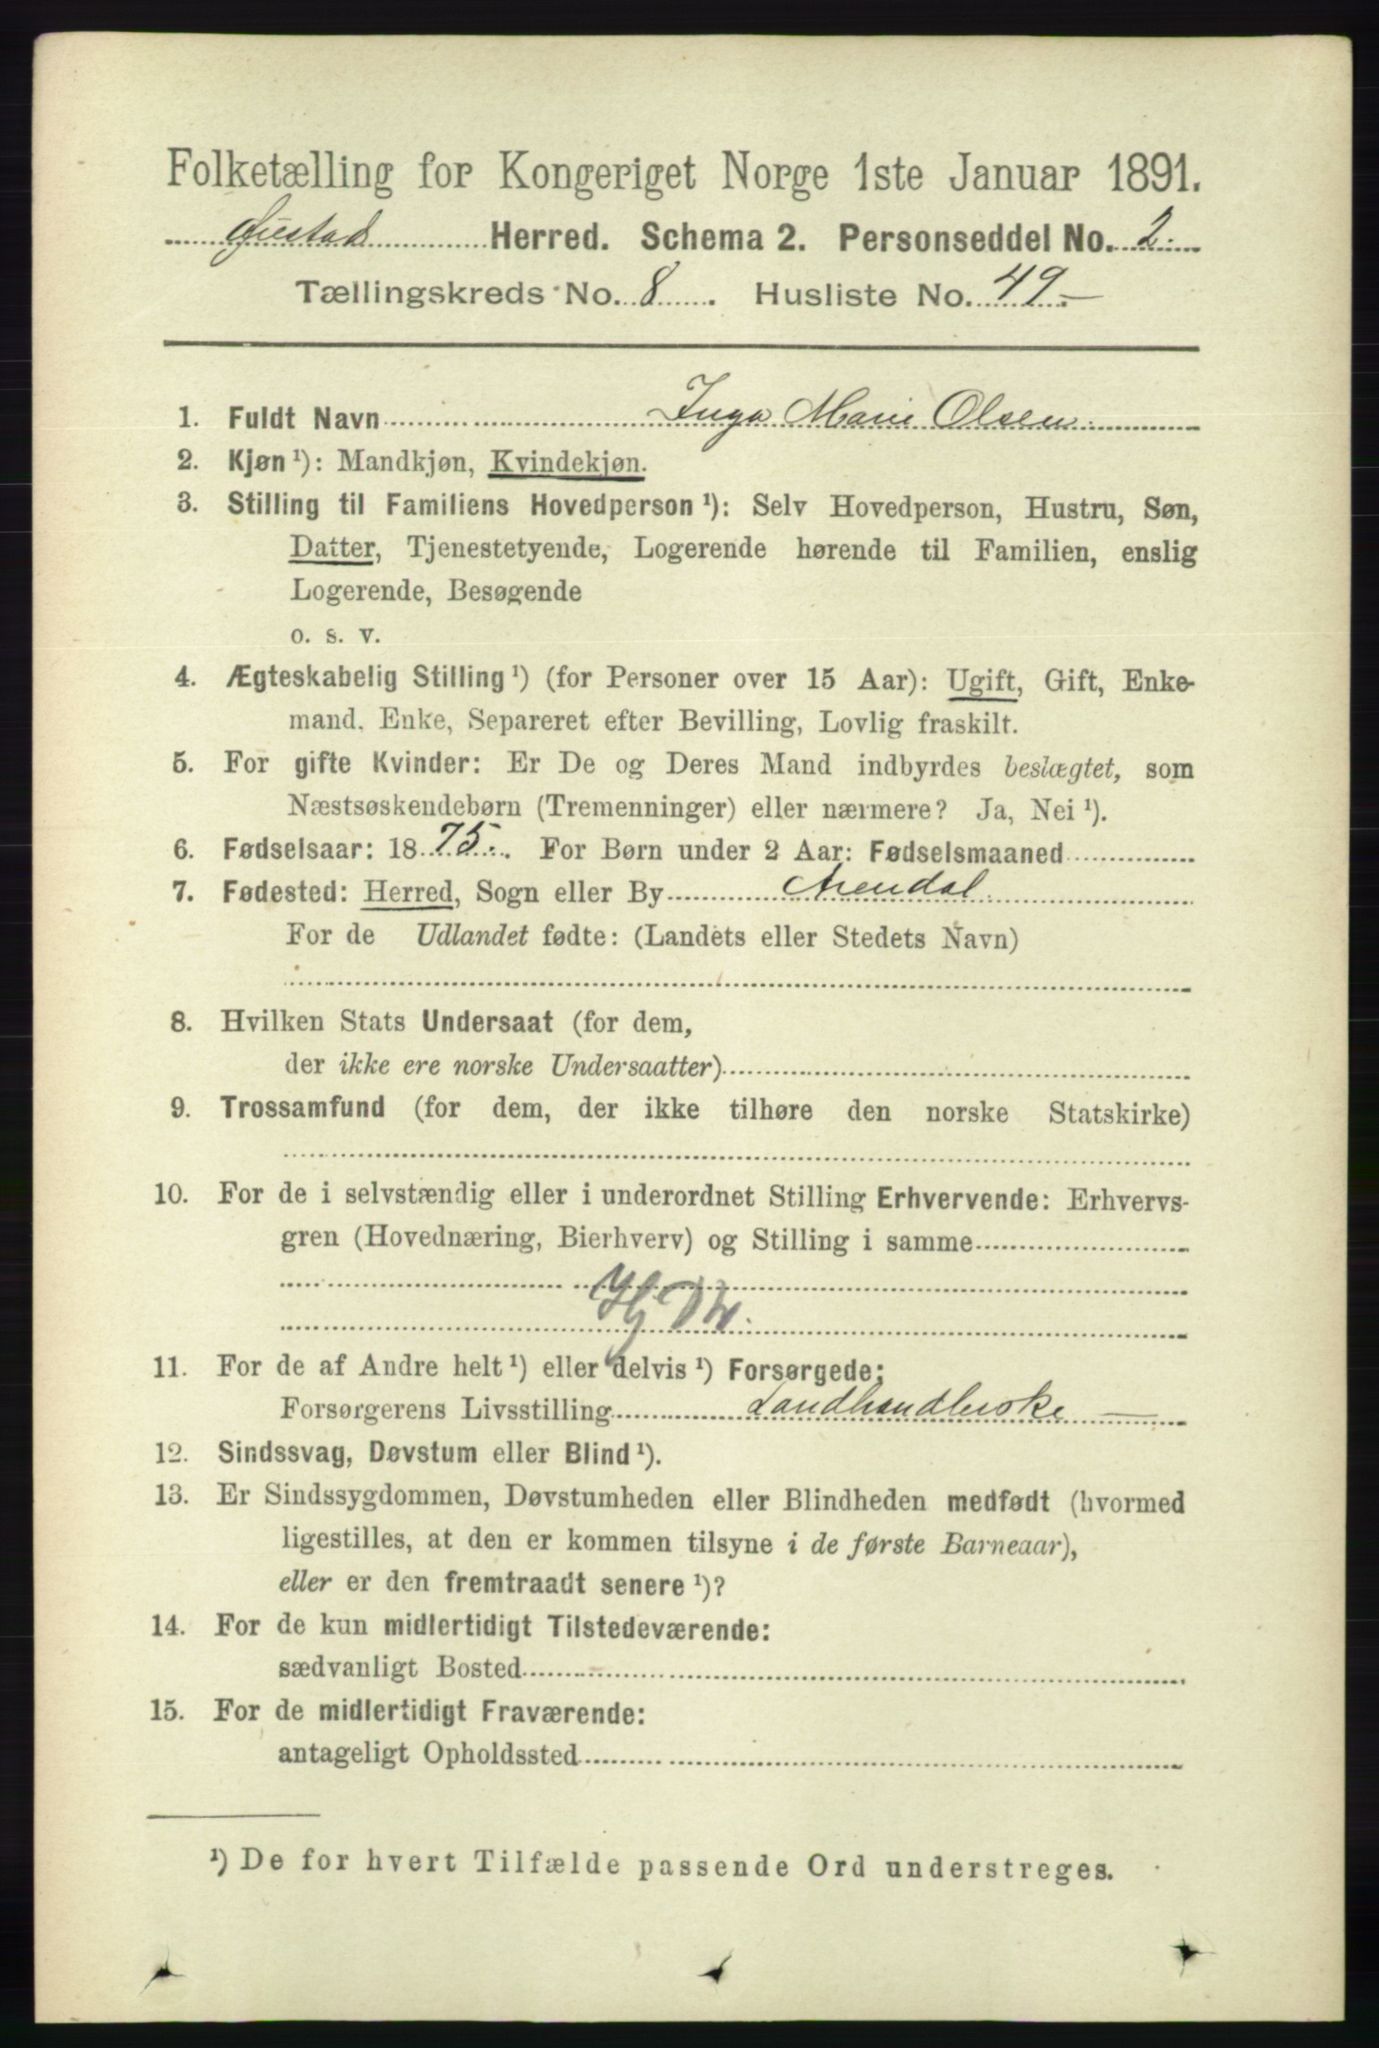 Folketælling for Kongeriget Norge 1ste Januar 1891.
Øiestad Herred. Schema 2. Personseddel No. 2.
Tællingskreds No. 8. Husliste No. 49.–
1. Fuldt Navn Inga Marie Olsen.
2. Kjøn ¹): Mandkjøn, Kvindekjøn.
3. Stilling til Familiens Hovedperson ¹): Selv Hovedperson, Hustru, Søn,
Datter, Tjenestetyende, Logerende hørende til Familien, enslig
Logerende, Besøgende
o. s. v.
4. Ægteskabelig Stilling ¹) (for Personer over 15 Aar): Ugift, Gift, Enke-
mand, Enke, Separeret efter Bevilling, Lovlig fraskilt.
5. For gifte Kvinder: Er De og Deres Mand indbyrdes beslægtet, som
Næstsøskendebørn (Tremenninger) eller nærmere? Ja, Nei ¹).
6. Fødselsaar: 1875. For Børn under 2 Aar: Fødselsmaaned
7. Fødested: Herred, Sogn eller By Arendal.
For de Udlandet fødte: (Landets eller Stedets Navn)
8. Hvilken Stats Undersaat (for dem,
der ikke ere norske Undersaatter)
9. Trossamfund (for dem, der ikke tilhøre den norske Statskirke)
10. For de i selvstændig eller i underordnet Stilling Erhvervende: Erhvervs-
gren (Hovednæring, Bierhverv) og Stilling i samme
Hj. M.
11. For de af Andre helt ¹) eller delvis ¹) Forsørgede:
Forsørgerens Livsstilling Landhandlerske –
12. Sindssvag, Døvstum eller Blind ¹).
13. Er Sindssygdommen, Døvstumheden eller Blindheden medfødt (hvormed
ligestilles, at den er kommen tilsyne i de første Barneaar),
eller er den fremtraadt senere ¹)?
14. For de kun midlertidigt Tilstedeværende:
sædvanligt Bosted
15. For de midlertidigt Fraværende:
antageligt Opholdssted
¹) De for hvert Tilfælde passende Ord understreges.